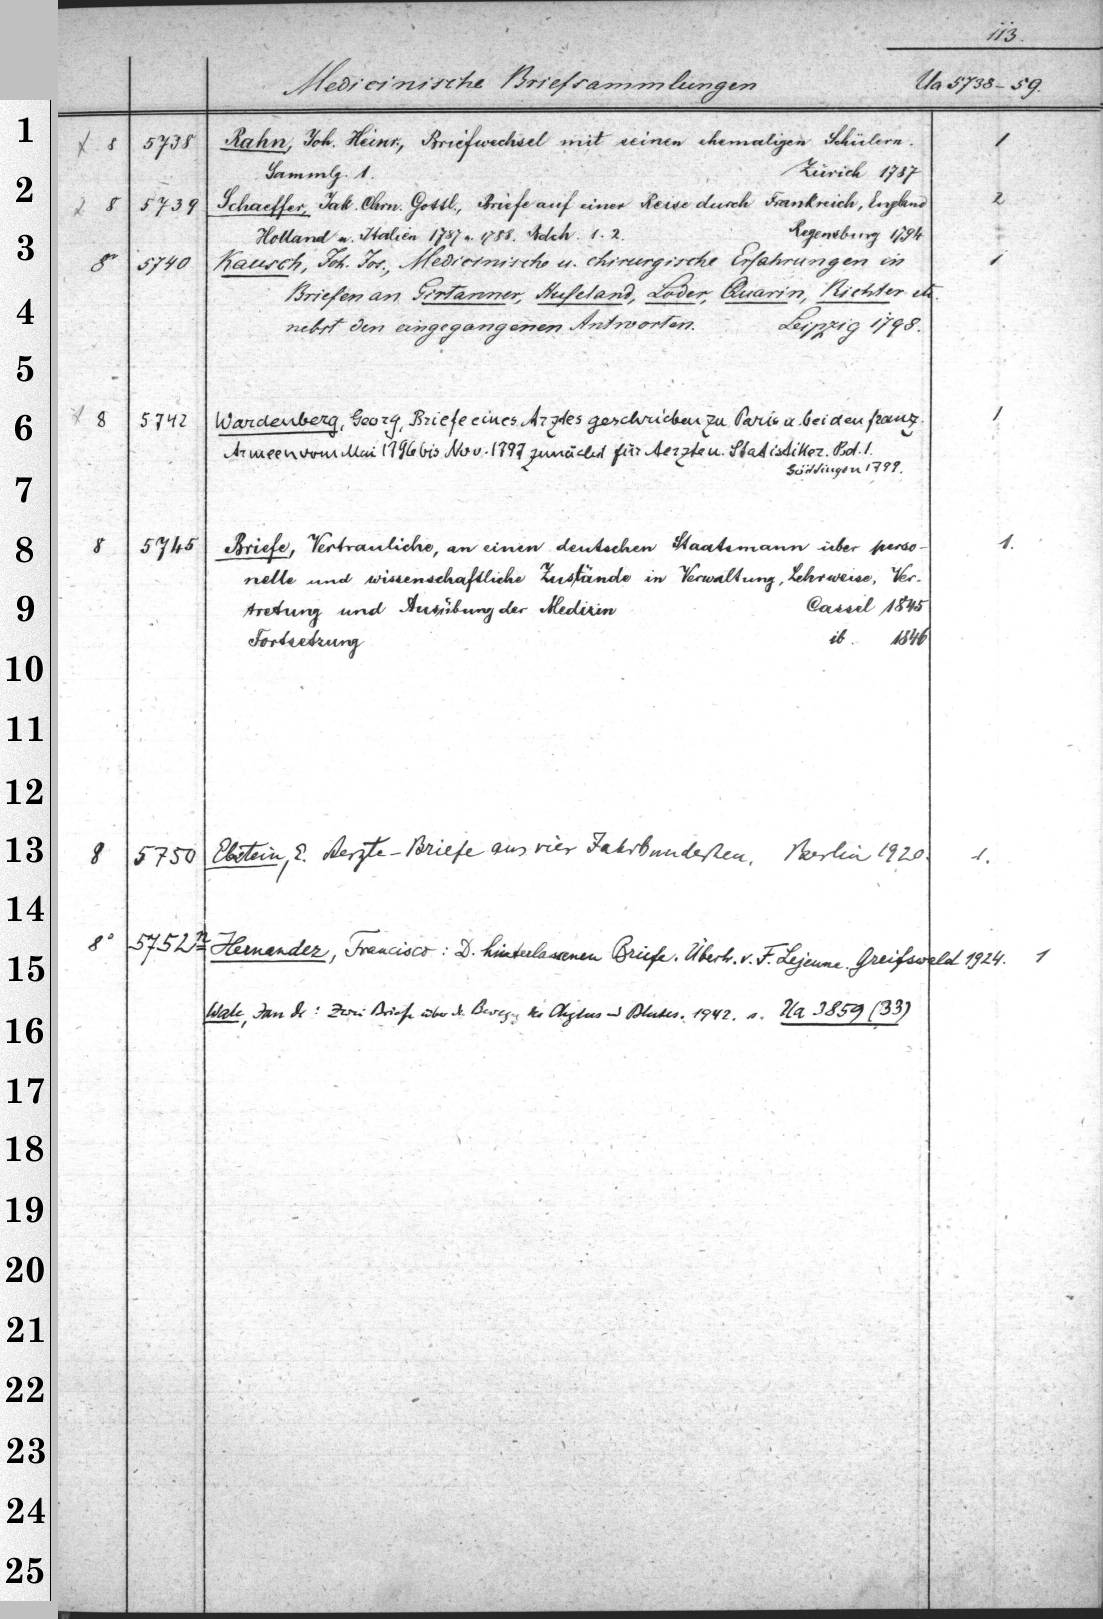 113.
Medicinische Briefsammlungen Ua 5738-59.
1
8 5738 Rahn, Joh. Heinr., Briefwechsel mit seinen ehemaligen Schülern. 1
Sammlg. 1. Zürich 1787
2
8 5739 Schaeffer, Jak. Chrn. Gottl., Briefe auf einer Reise durch Frankreich, England 2
Holland u. Italien 1787 u. 1788. Bdch. 1. 2. Regensburg 1794
3
8° 5740 Kausch, Joh. Jos., Medicinische u. chirurgische Erfahrungen in 1
Briefen an Girtanner, Hufeland, Loder, Quarin, Richter etc.
4
nebst den eingegangenen Antworten. Leipzig 1798.
5
6
8 5742 Wardenberg, Georg, Briefe eines Arztes geschrieben zu Paris u. bei den franz. 1
Armeen vom Mai 1796 bis Nov. 1797 zunächst für Aerzte u. Statistiker. Bd. 1.
Göttingen 1799.
7
8
8 5745 Briefe, Vertrauliche, an einen deutschen Staatsmann über perso- 1.
nelle und wissenschaftliche Zustände in Verwaltung, Lehrweise, Ver-
9
tretung und Ausübung der Medizin Cassel 1845
Fortsetzung ib. 1846
10
11
12
13
8 5750 Ebstein, E. Aerzte-Briefe aus vier Jahrhunderten. Berlin 1920. 1.
14
8° 5752 n Hernandez, Francisco: D. hinterlassenen Briefe. Übers. v. F. Lejeune. Greifswald 1924. 1
15
Wale, Jan de: Zwei Briefe über d. Bewegg des Chylus u Blutes. 1942. s. Ua 3859 (33)
16
17
18
19
20
21
22
23
24
25